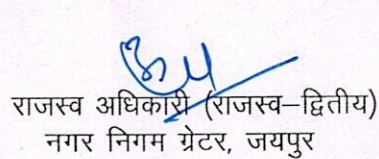 राजस्व अधिकारी (राजस्व–द्वितीय)
नगर निगम ग्रेटर, जयपुर